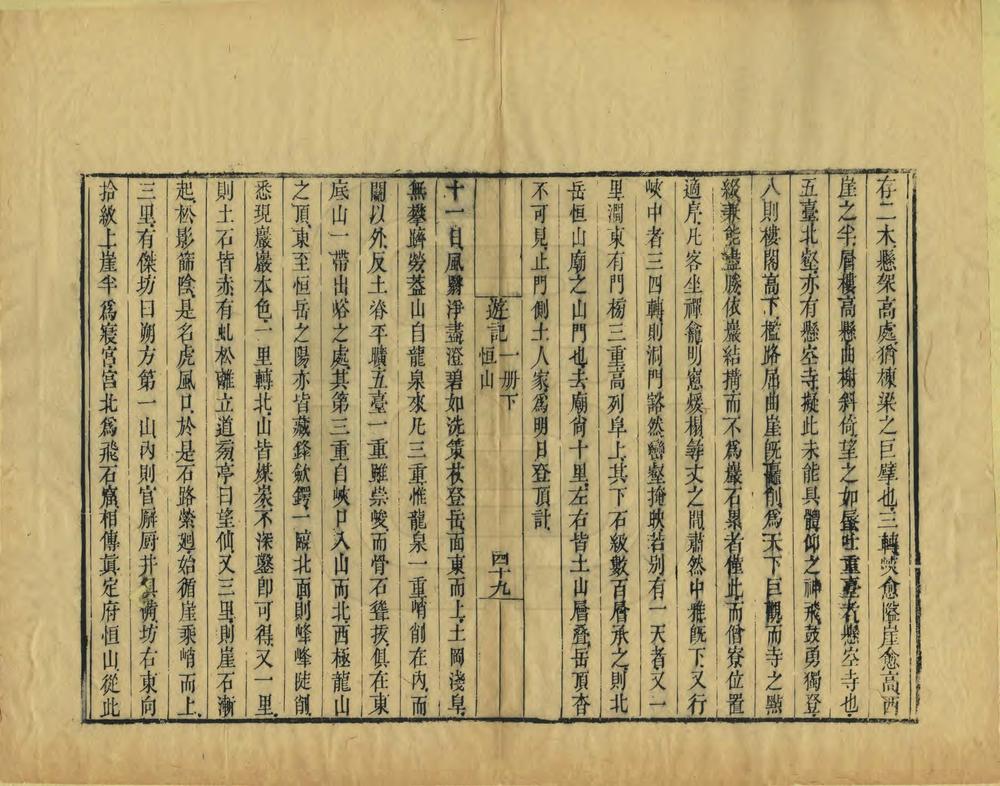 存二木懸架高處猶棟梁之巨擘也三轉峽愈隘崖愈高西
崖之半層樓高懸曲榭斜倚望之如蜃吐重臺者懸空寺也
五臺北壑亦有懸空寺擬此未能具體仰之神飛鼓勇獨登
入則樓閣高下檻路屈曲崖既矗削為天下巨觀而寺之點
綴兼能盡勝依巖結搆而不為巖石累者僅此而僧寮位置
適序凡客坐禪龕明窓煖榻尋丈之間肅然中雅既下又行
峽中者三四轉則洞門豁然巒壑掩映若別有一天者又一
里澗東有門榜三重高列阜上其下石級數百層承之則北
岳恒山廟之山門也去廟尚十里左右皆土山層疊岳頂杳
不可見止門側土人家為明日登頂計
遊記 一册下 恒山 四十九
十一日風翳淨盡澄碧如洗策杖登岳面東而上土岡淺阜
無攀躋勞蓋山自龍泉來凡三重惟龍泉一重峭削在內而
關以外反土脊平曠五臺一重雖崇峻而骨石聳拔俱在東
底山一帶出峪之處其第三重自峽口入山而北西極龍山
之頂東至恒岳之陽亦皆藏鋒歛鍔一臨北面則峰峰陡削
悉現巖巖本色一里轉北山皆煤炭不深鑿即可得又一里
則土石皆赤有虬松離立道旁亭曰望仙又三里則崖石漸
起松影篩陰是名虎風口於是石路縈廻始循崖乘峭而上
三里有傑坊曰朔方第一山內則官廨厨井具備坊右東向
拾級上崖半為寢宮宮北為飛石窟相傳真定府恒山從此